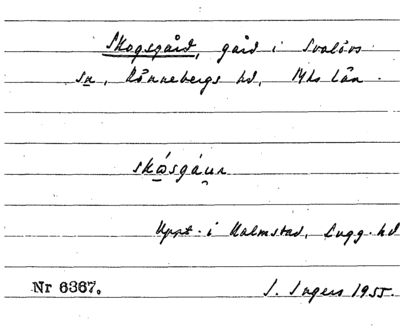 Skogsgård, gård i Svalövs
sn, Rönnebergs hd, Mhs län.
skǫ́sgáu̯r
Uppt. i Halmstad, Lugg. hd
Nr 6367. I. Ingers 1955.